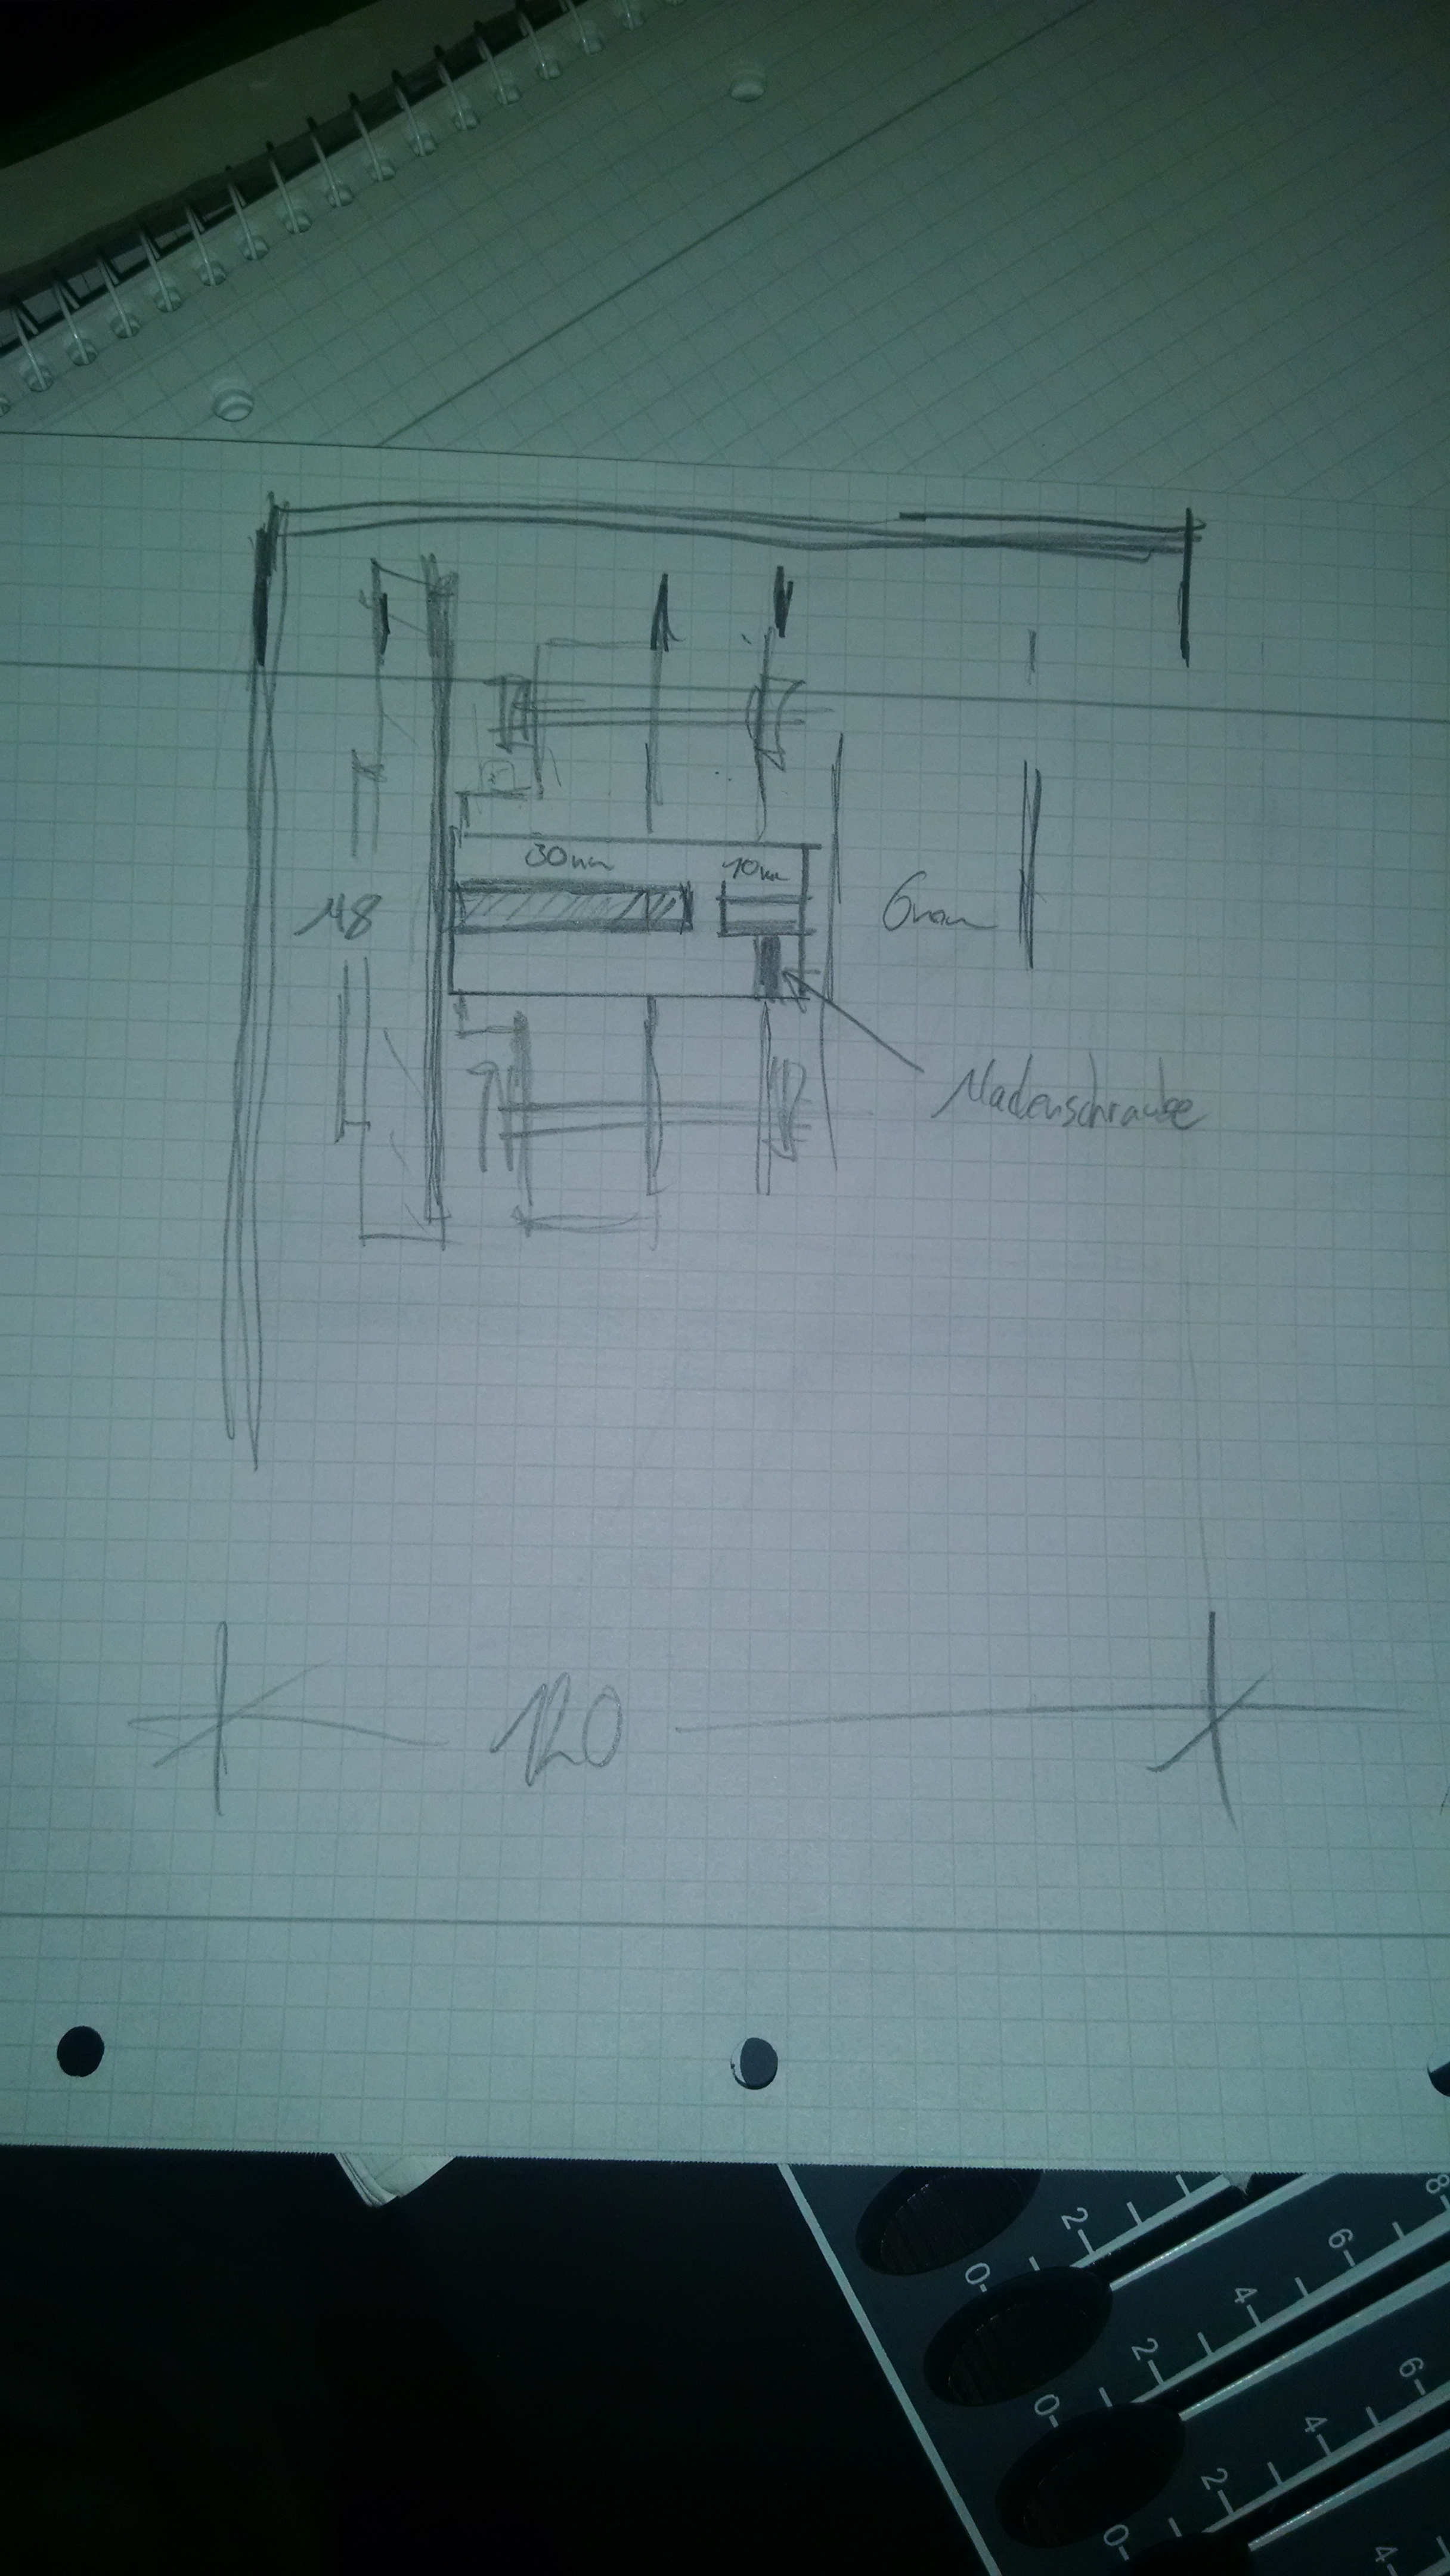 30mm
10mm
M8
6mm
Madenschraube
120
2
0
8
6
4
2
0
6
4
2
0
4